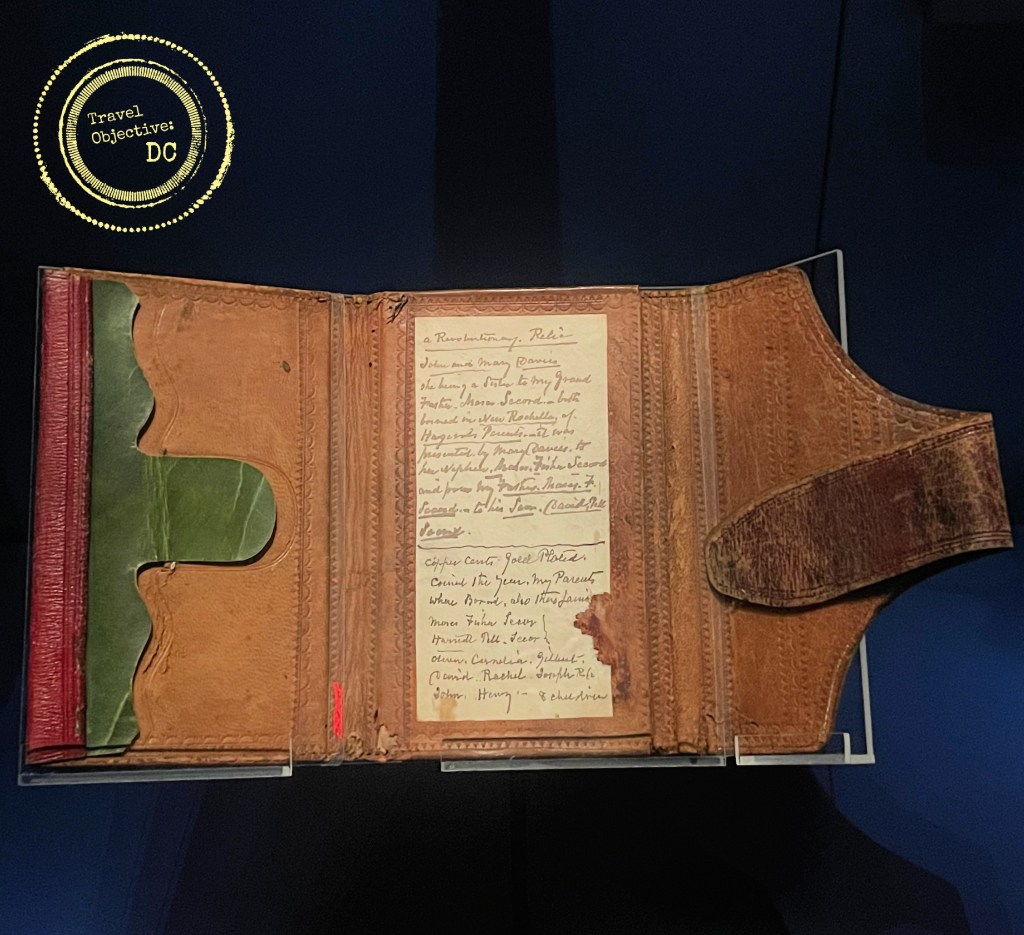 Travel
Objective:
DC
a Revolutionary Relic
John and Mary Davies
she being a Sister to my Grand
Father. Moses Secord - both
borned in New Rochelle, of
Hugonots Parents. it was
presented by Mary Davies. to
her Nephew. Moses. Fisher Secord
and from my Father. Moses. F.
Secord - to his Son. David. Pell
Secord.
Copper Cents Gold Plated.
Coined the Year. My Parents
where Borned, also their
Moses Fisher Secor
Harriett Pell. Secor
Cornelia. Gilbert.
David Rachel Joseph
John. Henry - 8 children